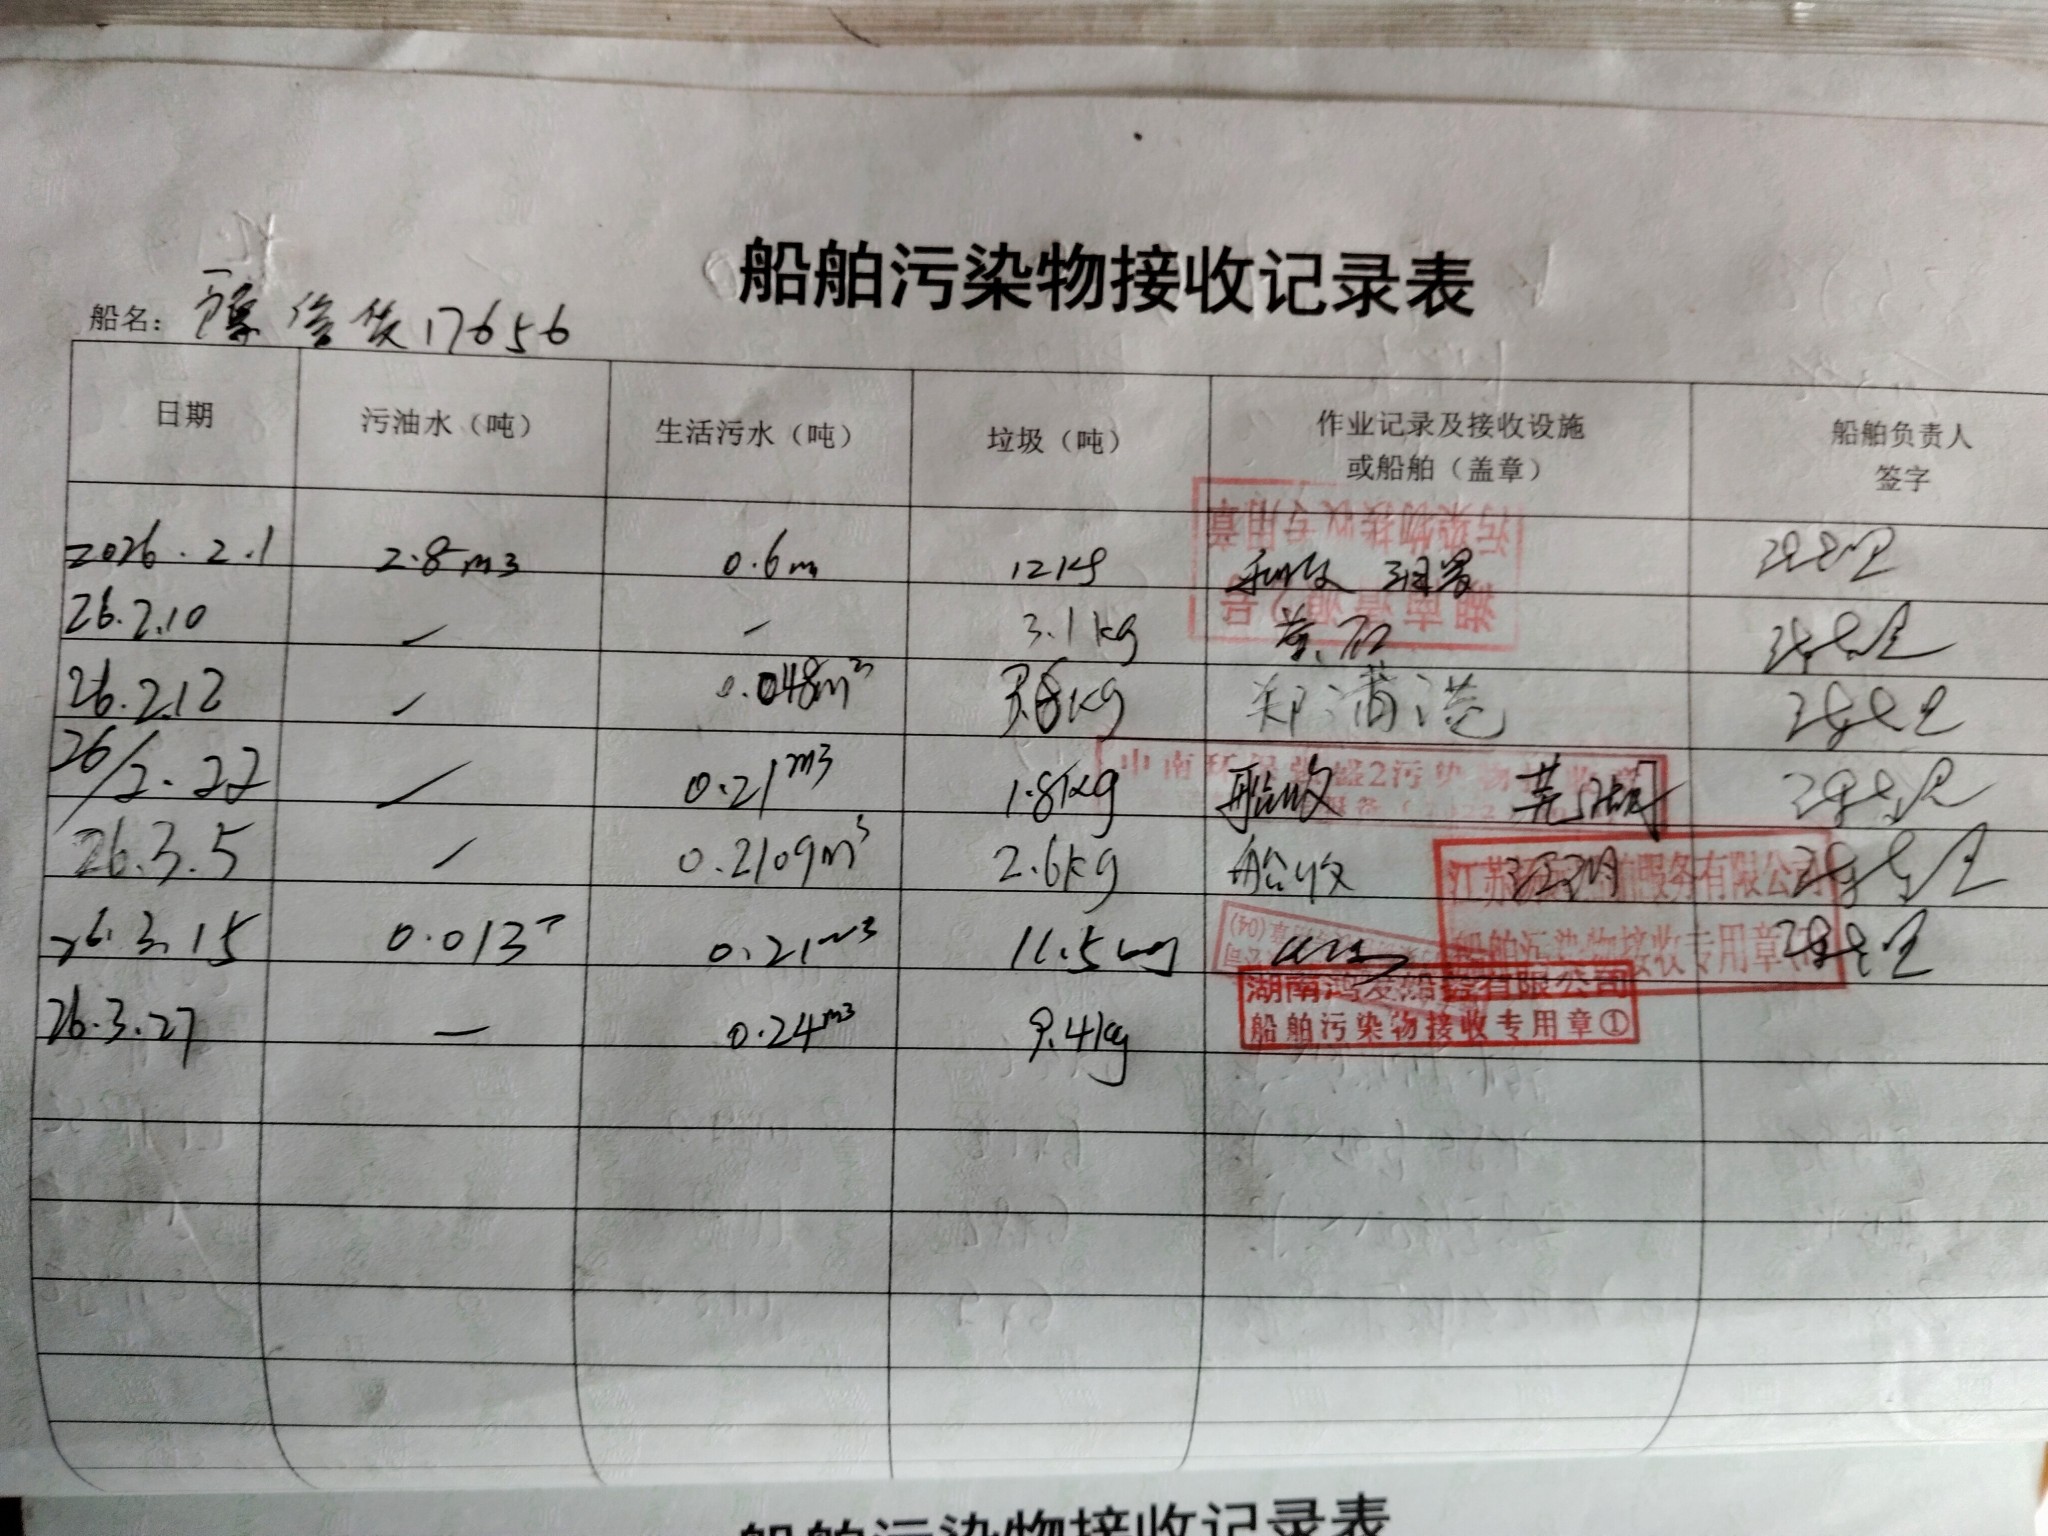 船舶污染物接收记录表
船名：豫信货17656
日期 污油水（吨） 生活污水（吨） 垃圾（吨） 作业记录及接收设施 船舶负责人
或船舶（盖章） 签字
污染物接收专用章
2026.2.1 2.8m3 0.6m 12kg
湖南
26.2.10 / - 3.1kg 黄石
26.2.12 / 0.048m³ 3.8kg 郑蒲港
中南环 2污染物
26/2.22 / 0.21m3 1.8kg 船收 芜湖
26.3.5 / 0.2109m³ 2.6kg 船收
江苏 船舶服务有限公司
船舶污染物接收专用章
26.3.15 0.013 0.21m3 11.5kg
(04)
湖南鸿发船务有限公司
船舶污染物接收专用章①
26.3.27 — 0.24m3 9.4kg
船舶污染物接收记录表